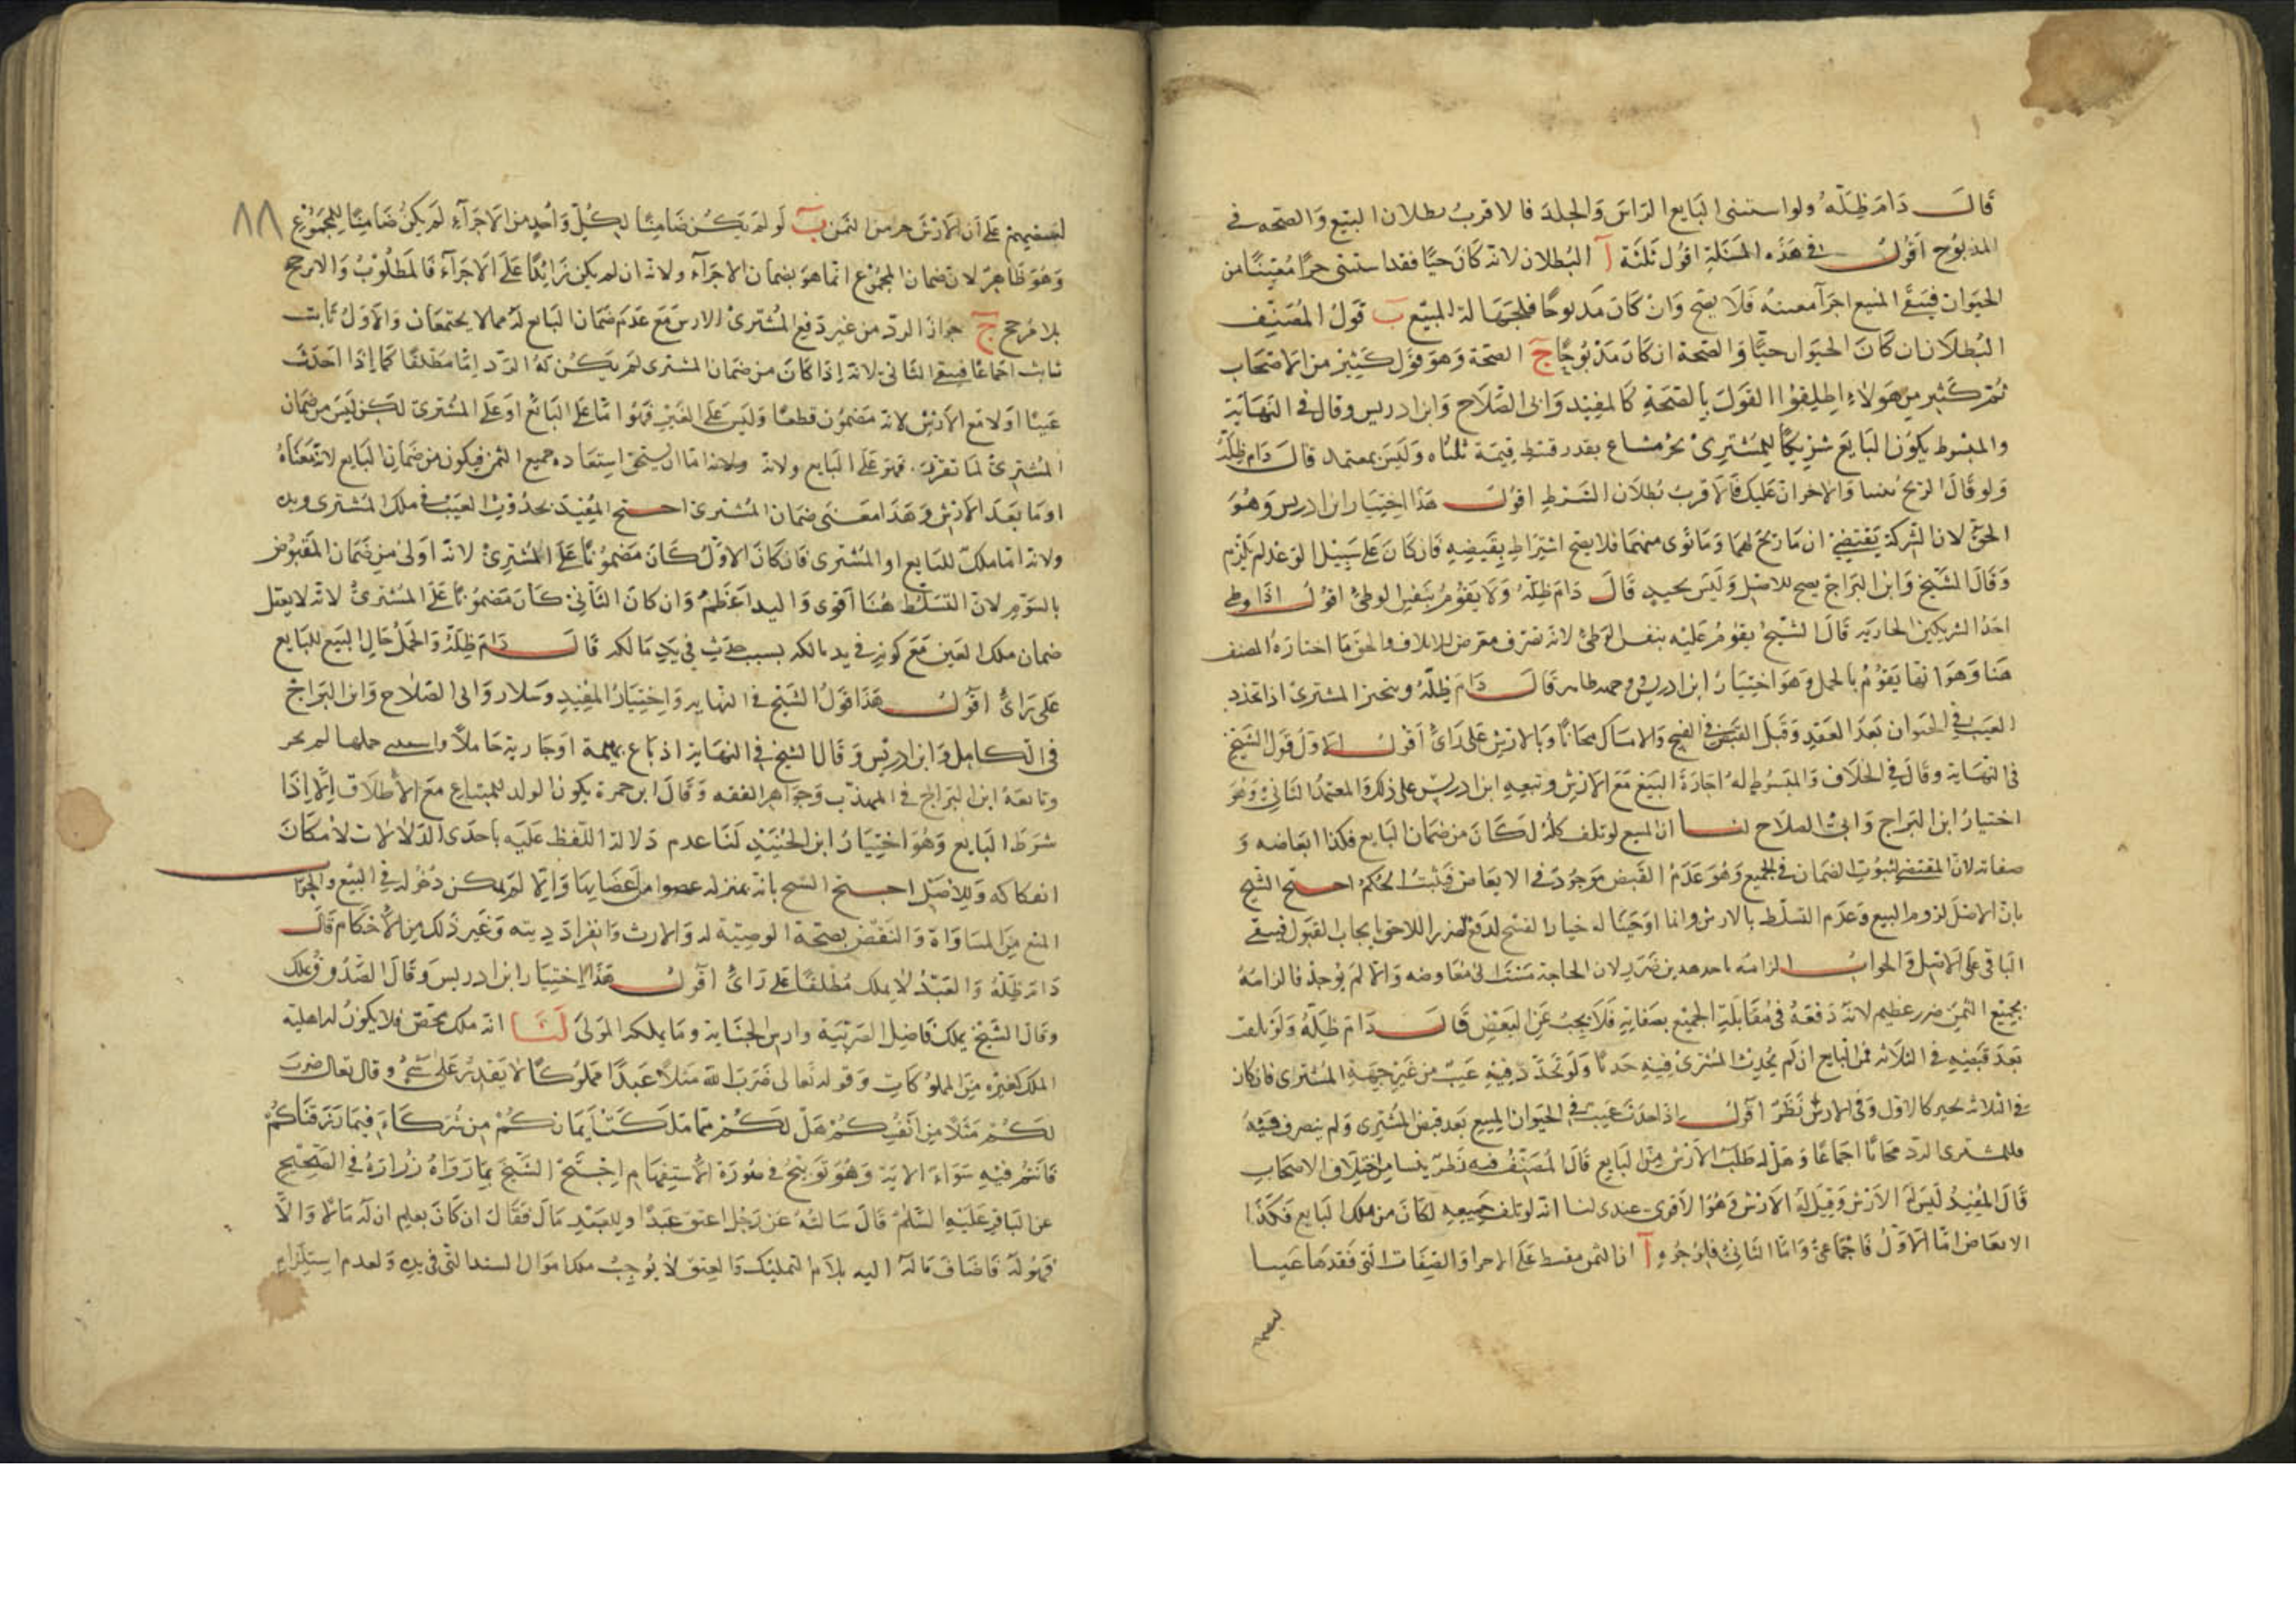 قال دام ظله ولو استثنى البايع الراس والجلد فالاقرب بطلان البيع والصحة في
المذبوح اقول في هذه المسئلة اقول ثلثة آ البطلان لانه كان حيا فقد استثنى جزا معينا من
الحيوان فيبقى المبيع اجزآ معينة فلا يصح وان كان مذبوحا فلجهالة المبيع ب قول المصنف
البطلان ان كان الحيوان حيا والصحة ان كان مذبوحا ج الصحة وهو قول كثيز من الاصحاب
ثم كثير من هولاء اطلقوا القول بالصحة كالمفيد وابي الصلاح وابن ادريس وقال في النهاية
والمبسوط يكون البايع شريكا للمشتري بجزء مشاع بقدر قسط قيمة ثنياه وليس بمعتمد قال دام ظله
ولو قال الربح بيننا والخسران عليك فالاقرب بطلان الشرط اقول هذا اختيار ابن ادريس وهو
الحق لان الشركة تقتضي ان ما ربح لهما وما توى منهما فلا يصح اشتراط نقيضه فان كان على سبيل الوعد لم يلزم
وقال الشيخ وابن البراج يصح للاصل وليس بجيد قال دام ظله ولا يقوم بنفس الوطئ اقول اذا وطى
احد الشريكين الجارية قال الشيخ يقوم عليه بنفس الوطئ لانه تصرف معرض للاتلاف والحق ما اختاره المصنف
هنا وهو انها يقوم بالحمل وهو اختيار ابن ادريس قال دام ظله ويتخير المشترى اذا تجدد
العيب في الحيوان بعد العقد وقبل القبض في الفسخ والامساك مجانا وبالارش على راى اقول الاول قول الشيخ
في النهاية وقال في الخلاف والمبسوط له اجازة البيع مع الارش وتبعه ابن ادريس على ذلك والمعتمد الثاني وهو
اختيار ابن البراج وابي الصلاح لنا ان المبيع لو تلف كله لكان من ضمان البايع فكذا ابعاضه و
صفاته لان المقتضى لثبوت الضمان في الجميع وهو عدم القبض موجود في الابعاض فيثبت الحكم احتج الشيخ
بان الاصل لزوم البيع وعدم التسلط بالارش وانما اوجبنا له خيار الفسخ لدفع لضرر اللاحق بايجاب القبول فيبقى
الباقي على الاصل والجواب الزامه باحد هدين ضرر لان الحاجة مست الى معاوضه والا لم يوجد فالزامه
بجميع الثمن ضرر عظيم لانه دفعه في مقابلة الجميع بصفاته فلا يجب عن البعض قال دام ظله ولو تلف
بعد قبضه في الثلاثه فمن البايع ان لم يحدث المشترى فيه حدثا ولو تجدد فيه عيب من غير جهة المشترى فان كان
في الثلاثه تخير كالاول وفي الارش نظر اقول اذا حدث عيب في الحيوان المبيع بعد قبض المشترى ولم يتصرف فيه
فللمشترى الرد مجانا اجماعا وهل له طلب الارش من البايع قال المصنف فيه نظر ينشا من اختلاف الاصحاب
قال المفيد ليس له الارش وقيل له الارش وهو الاقوى عندى لنا انه لو تلف جميعه لكان من ملك البايع فكذا
الابعاض اما الاول فاجماعي واما الثاني فلوجوه آ ان الثمن مقسط على الاجزا والصفات التي فقدها عيب
٨٨
لتضمينهم على ان الارش جزء من الثمن ب لو لم يكن ضامنا لكل واحد من الاجزآء لم يكن ضامنا للمجموع
وهو ظاهر لان ضمان المجموع انما هو بضمان الاجزآء ولانه ان لم يكن زائدا على الاجزآء فالمطلوب والا ترجح
بلا مرجح ج جواز الرد من غير دفع المشترى الارش مع عدم ضمان البايع له مما لا يجتمعان والاول ثابت
ثابت اجماعا فيبقى الثاني لانه اذا كان من ضمان المشترى لم يكن له الرد اما مطلقا كما اذا احدث
عيبا او لا مع الارش لانه مضمون قطعا وليس على الغير فهو اما على البائع او على المشترى لكن ليس من ضمان
المشترى لما تقرر فهو على البايع ولانه اما ان يستحق استعاده جميع الثمن فيكون من ضمان البايع لانه معناه
او ما بعد الارش وهذا معنى ضمان المشترى احتج المفيد بحدوث العيب في ملك المشترى ويده
ولانه اما ملك للبايع او المشترى فان كان الاول كان مضمونا على المشترى لانه اولى من ضمان المقبوض
بالسوم لان التسلط هنا اقوى واليد اعظم وان كان الثاني كان مضمونا على المشترى لانه لا يعقل
ضمان ملك العين مع كونه في يد مالكه بسبب حدث في يد مالكه قال دام ظله والحمل حال البيع للبايع
على راى اقول هذا قول الشيخ في النهايه واختيار المفيد وسلار وابي الصلاح وابن البراج
في الكامل وابن ادريس وقال الشيخ في النهاية اذ باع بهيمة او جارية حاملا واستثنى حملها لم يجز
وتابعه ابن البراج في المهذب وجواهر الفقه وقال ابن حمزة يكون الولد للمبتاع مع الاطلاق الا اذا
شرط البايع وهو اختيار ابن الجنيد لنا عدم دلالة اللفظ عليه باحدى الدلالات لامكان
انفكاكه وللاصل احتج الشيخ بانه بمنزلة عضو من اعضايها والا لم يمكن دخوله في البيع والجواب
المنع من المساواة والنقض بصحة الوصية له والارث وانفراد ديته وغير ذلك من الاحكام قال
دام ظله والعبد لا يملك مطلقا على راى اقول هذا اختيار ابن ادريس وقال الصدوق يملك
وقال الشيخ يملك فاضل الضريبة وارش الجناية وما يملكه المولى لنا انه ملك محض فلا يكون له اهلية
الملك كغيره من المملوكات وقوله تعالى ضرب الله مثلا عبدا مملوكا لا يقدر على شئ وقال تعالى ضرب
لكم مثلا من انفسكم هل لكم مما ملكت ايمانكم من شركاء فيما رزقناكم
فانتم فيه سواء الاية وهو توبيخ في صورة الاستفهام احتج الشيخ بما رواه زرارة في الصحيح
عن الباقر عليه السلم قال سالته عن رجل اعتق عبدا وللعبد مال فقال ان كان يعلم ان له مالا والا
فهو له فاضاف ماله اليه بلام التمليك والعتق لا يوجب ملك اموال السيد التي في يده ولعدم استلزام